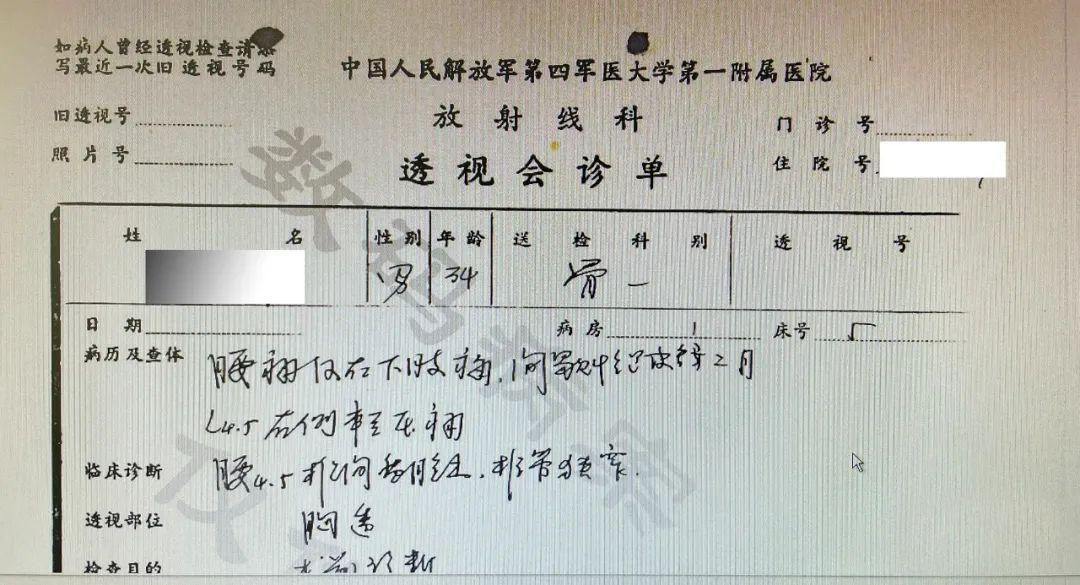 如病人曾经透视检查请添
写最近一次旧透视号码
中国人民解放军第四军医大学第一附属医院
旧透视号
放射线科
门诊号
照片号
透视会诊单
住院号
姓名 性别 年龄 送检科别 透视号
男 34 骨一
日期 病房 1 床号 5
病历及查体 腰痛及右下肢痛,间歇 2月
L4.5右侧 压痛
临床诊断 腰4.5椎间 ,椎管狭窄.
透视部位 胸透
检查目的 术前